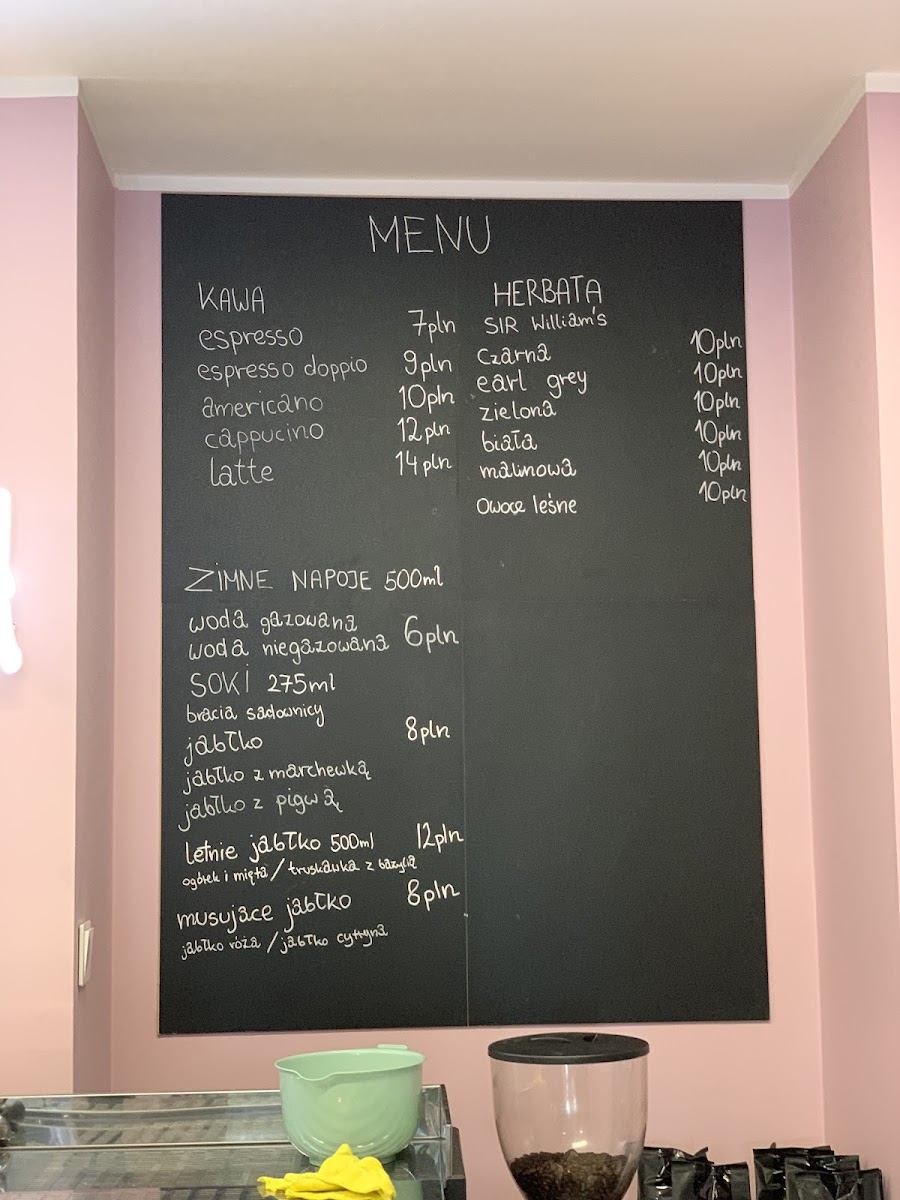 MENU
KAWA
espresso 7pln
espresso doppio 9pln
americano 10pln
cappucino 12pln
latte 14pln
HERBATA
SIR William's
czarna 10pln
earl grey 10pln
zielona 10pln
biała 10pln
malinowa 10pln
owoce leśne 10pln
ZIMNE NAPOJE 500ml
woda gazowana
woda niegazowana 6pln
SOKI 275ml
bracia sadownicy
jabłko 8pln
jabłko z marchewką
jabłko z pigwą
letnie jabłko 500ml 12pln
ogórek i mięta / truskawka z bazylią
musujące jabłko 8pln
jabłko róża / jabłko cytryna